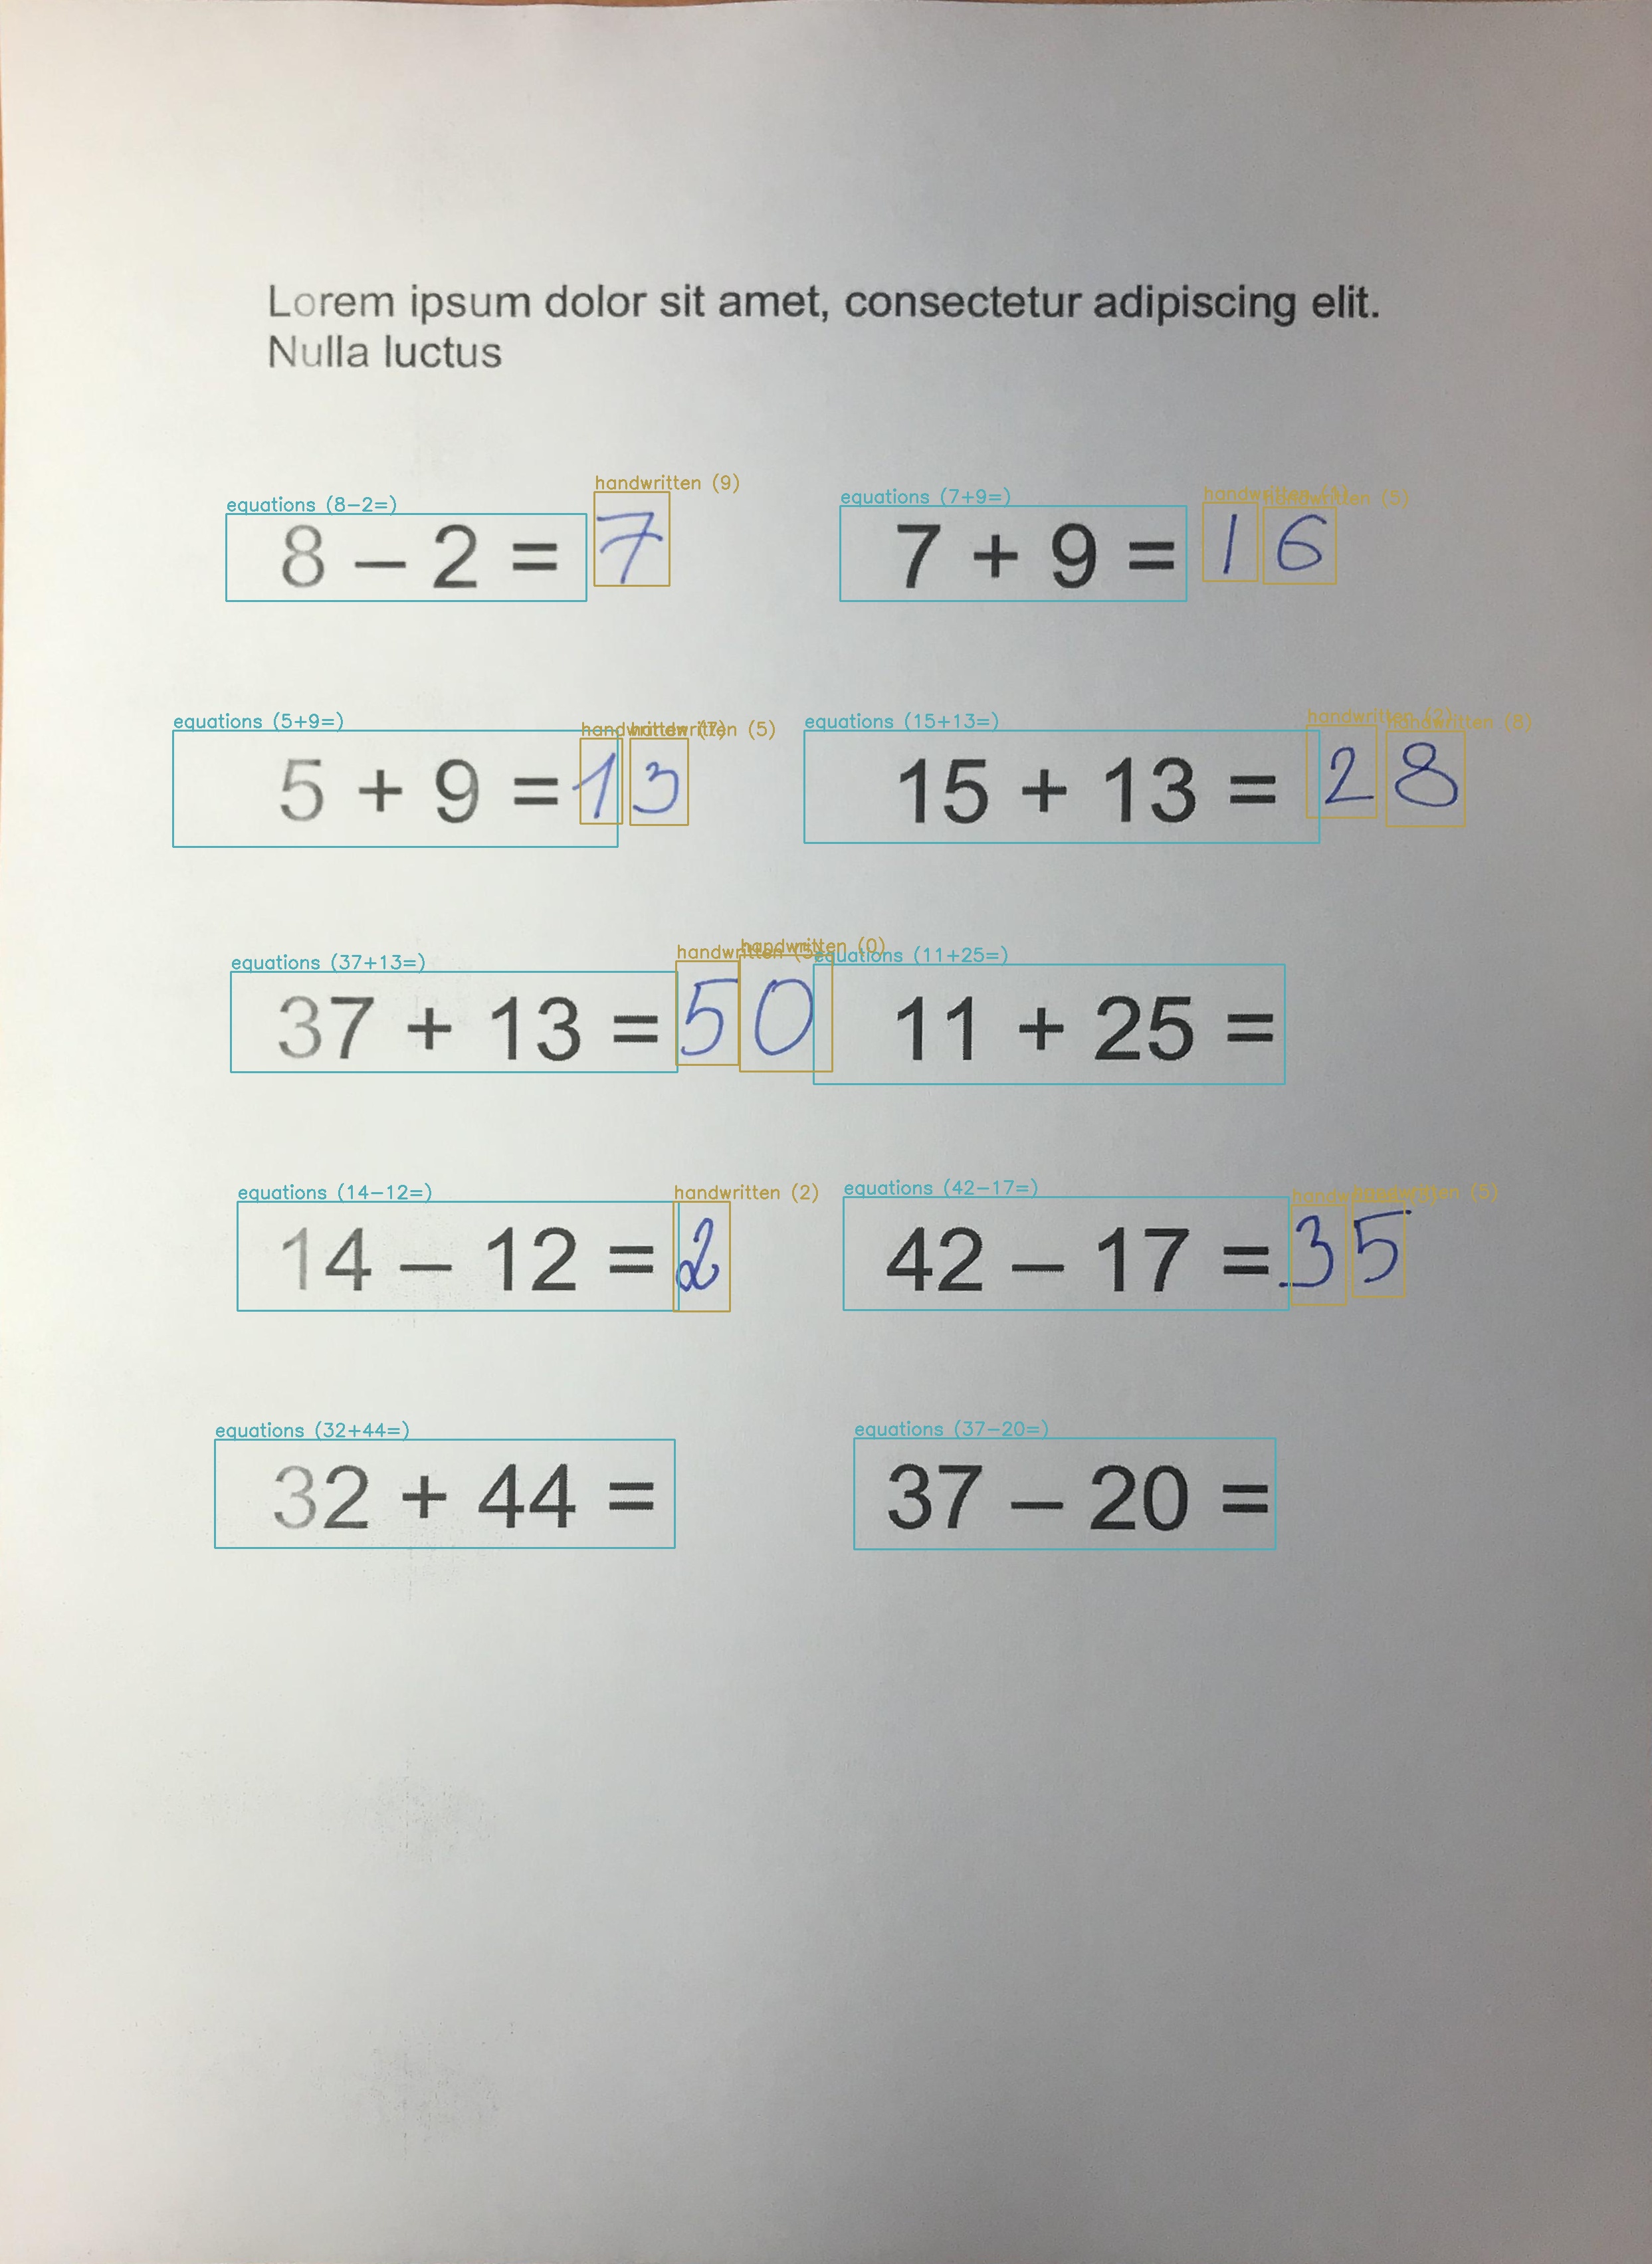 Lorem ipsum dolor sit amet, consectetur adipiscing elit.
Nulla luctus
equations (8-2=) handwritten (9) equations (7+9=) handwritten handwritten (5)
8 – 2 = 7 7 + 9 = 16
equations (5+9=) handwritten (7) handwritten (5) equations (15+13=) handwritten (2) handwritten (8)
5 + 9 = 13 15 + 13 = 28
equations (37+13=) handwritten (5) handwritten (0) equations (11+25=)
37 + 13 = 50 11 + 25 =
equations (14-12=) handwritten (2) equations (42-17=) handwritten handwritten (5)
14 – 12 = 2 42 – 17 = 35
equations (32+44=) equations (37-20=)
32 + 44 = 37 – 20 =